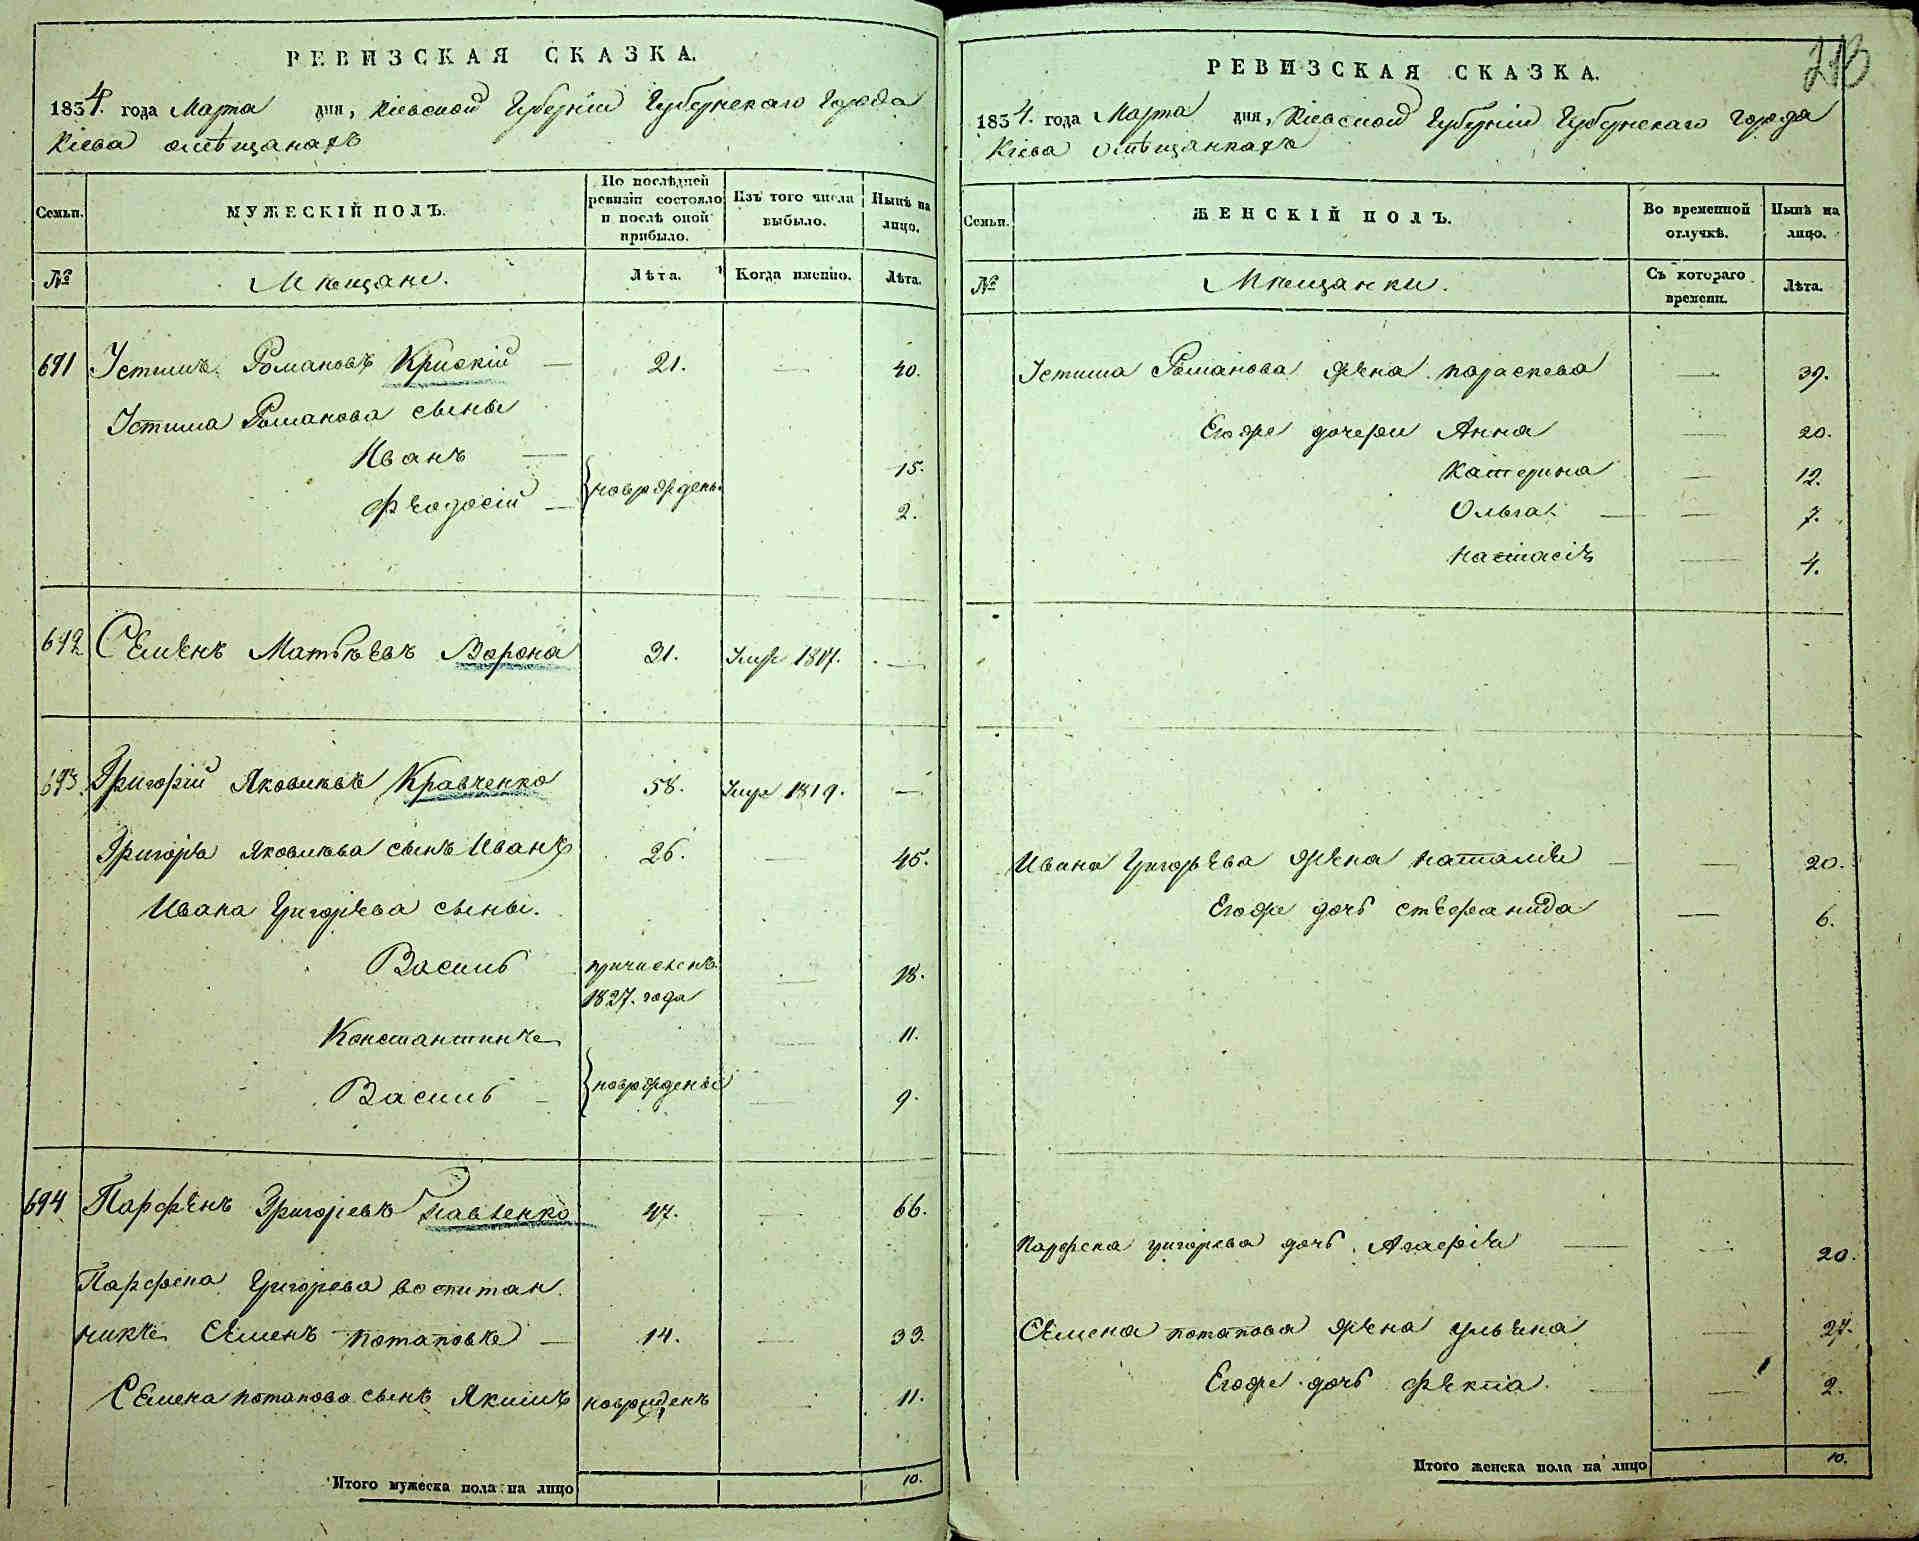 РЕВИЗСКАЯ СКАЗКА.
1834. года Марта дня, Кіевской Губерніи Губернскаго Города
Кіева омѣщанахъ
Семьи.
МУЖЕСКІЙ ПОЛЪ.
По послѣдней ревизіи состояло и послѣ оной прибыло.
Изъ того числа выбыло.
Нынѣ на лицо.
№
Мѣщане.
Лѣта.
Когда именно.
Лѣта.
691 Устимъ Романовъ 21. — 40.
Устима Романова сыны
Иванъ — 15.
Феодосій — новорожден. 2.
692 Семенъ Матвѣевъ Ворона 31. Умре 1817. —
693. Григорій Яковлевъ Кравченко 58. Умре 1819. —
Григорія Яковлева сынъ Иванъ 26. — 45.
Ивана Григорьева сыны.
Василь причисленъ 1827. года — 18.
Константинъ — 11.
Василь — новорожденые — 9.
694 Парфенъ Григоріевъ Павленко 47. — 66.
Парфена Григорьева воспитан
никъ Семенъ Потаповъ — 14. — 33.
Семена Потапова сынъ Якимъ новорожденъ — 11.
Итого мужеска пола на лицо 10.
213
РЕВИЗСКАЯ СКАЗКА.
1834. года Марта дня, Кіевской Губерніи Губернскаго Города
Кіева омѣщанкахъ
Семьи.
ЖЕНСКІЙ ПОЛЪ.
Во временной отлучкѣ.
Нынѣ на лицо.
№
Мѣщанки.
Съ котораго времени.
Лѣта.
Устима Романова жена Параскева — 39.
Егоже дочери Анна — 20.
Катерина — 12.
Ольга — 7.
Настасія — 4.
Ивана Григорьева жена Наталія — 20.
Егоже дочь Стефанида — 6.
Парфена Григорьева дочь Агафія — 20.
Семена Потапова жена Ульяна — 27.
Егоже дочь Фекла — 2.
Итого женска пола на лицо 10.